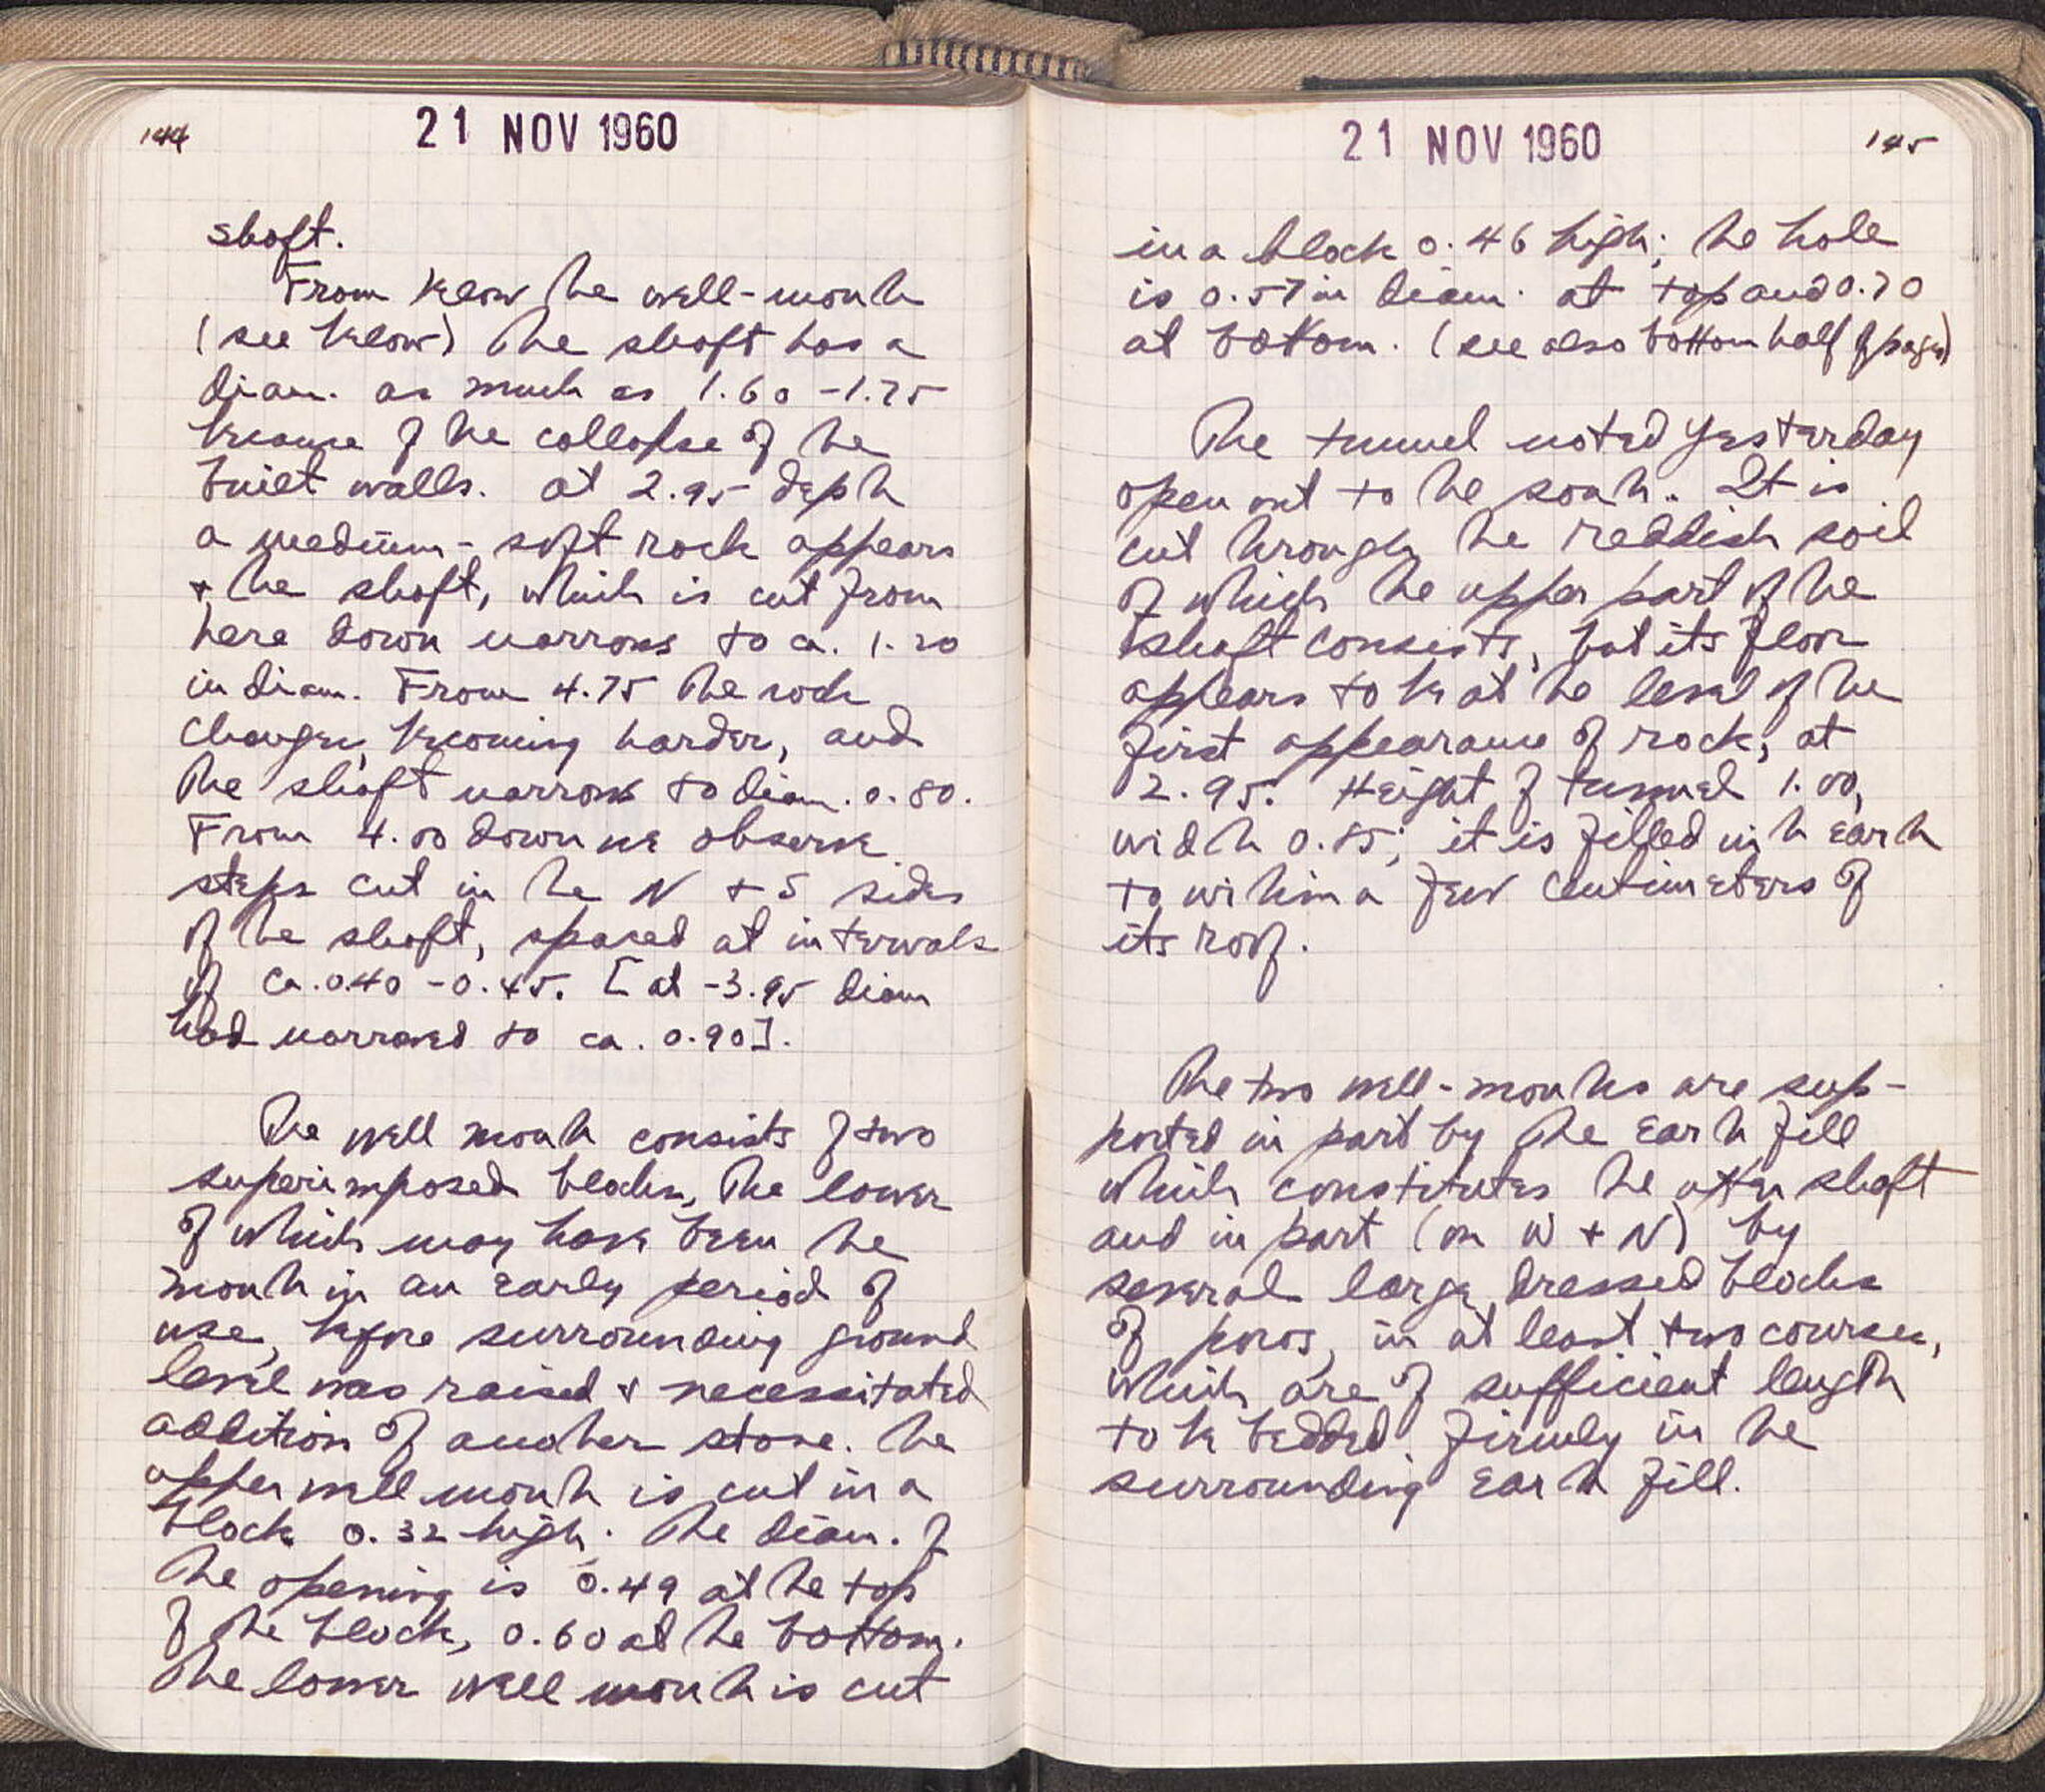 144
21 NOV 1960
shaft.
From below the well-mouth
(see below) the shaft has a
diam. as much as 1.60-1.75
because of the collapse of the
built walls. at 2.95 depth
a medium-soft rock appears
+ the shaft, which is cut from
here down narrows to ca. 1.20
in diam. From 4.75 the rock
changes, becoming harder, and
the shaft narrows to diam. 0.80.
From 4.00 down we observe
steps cut in the N + S sides
of the shaft, spaced at intervals
of ca. 0.40-0.45. [at -3.95 diam
had narrowed to ca. 0.90].
The well mouth consists of two
superimposed blocks, the lower
of which may have been the
mouth in an early period of
use, before surrounding ground
level was raised + necessitated
addition of another stone. The
upper well mouth is cut in a
block 0.32 high. The diam. of
the opening is 0.49 at the top
of the block, 0.60 at the bottom.
The lower well mouth is cut
21 NOV 1960
145
in a block 0.46 high; the hole
is 0.57 in diam. at top and 0.70
at bottom. (see also bottom half of page)
The tunnel noted yesterday
open out to the south. It is
cut through the reddish soil
of which the upper part of the
shaft consists, but its floor
appears to be at the level of the
first appearance of rock, at
2.95. Height of tunnel 1.00,
width 0.85; it is filled with earth
to within a few centimeters of
its roof.
The two well-mouths are sup-
ported in part by the earth fill
which constitutes the upper shaft
and in part (on W + N) by
several large dressed blocks
of poros, in at least two courses,
which are of sufficient length
to be bedded firmly in the
surrounding earth fill.